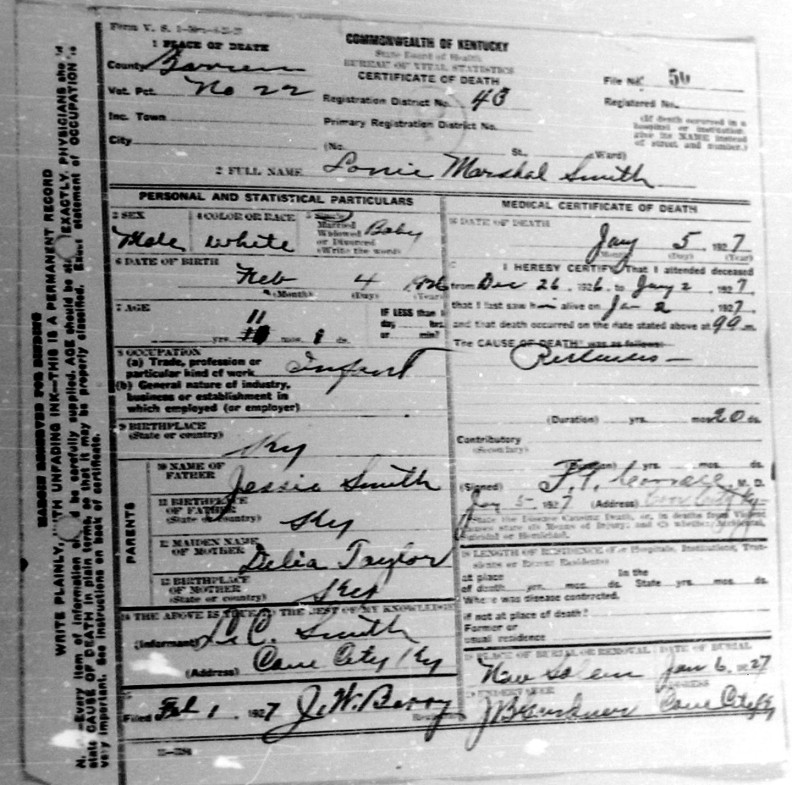 Form V. S.
COMMONWEALTH OF KENTUCKY
State Board of Health
BUREAU OF VITAL STATISTICS
CERTIFICATE OF DEATH
1 PLACE OF DEATH
County Barren
Vot. Pct. No 22
Inc. Town
City
File No. 50
Registration District No. 43
Registered No.
Primary Registration District No.
(If death occurred in a hospital or institution, give its NAME instead of street and number.)
(No. St., Ward)
2 FULL NAME Lonie Marshal Smith
PERSONAL AND STATISTICAL PARTICULARS
3 SEX Male
4 COLOR OR RACE white
5 Married Widowed or Divorced (Write the word) Baby
6 DATE OF BIRTH
Feb 4 1926
(Month) (Day) (Year)
7 AGE
yrs. 11 mos. 1 ds.
IF LESS than 1 day hrs. or min?
8 OCCUPATION
(a) Trade, profession or particular kind of work Infant
(b) General nature of industry,
business or establishment in
which employed (or employer)
9 BIRTHPLACE
(State or country) Ky
PARENTS
10 NAME OF FATHER Jessie Smith
11 BIRTHPLACE OF FATHER
(State or country) Ky
12 MAIDEN NAME OF MOTHER Delia Taylor
13 BIRTHPLACE OF MOTHER
(State or country) Ky
14 THE ABOVE IS TRUE TO THE BEST OF MY KNOWLEDGE
(Informant) L. C. Smith
(Address) Cave City Ky
15
Filed Feb 1, 1927 J. W. Berry
MEDICAL CERTIFICATE OF DEATH
16 DATE OF DEATH
Jany 5, 1927
(Month) (Day) (Year)
I HEREBY CERTIFY, That I attended deceased
from Dec 26, 1926, to Jany 2, 1927
that I last saw him alive on Jan 2, 1927,
and that death occurred on the date stated above at 9 a m.
The CAUSE OF DEATH was as follows:
(Duration) yrs. mos. 20 ds.
Contributory
(Secondary)
(Duration) yrs. mos. ds.
(Signed) M. D.
Jany 5- 1927 (Address) Cave City Ky
State the Disease Causing Death, or, in deaths from Violent
Causes state (1) Means of Injury; and (2) whether Accidental,
Suicidal or Homicidal.
18 LENGTH OF RESIDENCE (For Hospitals, Institutions, Transients or Recent Residents)
at place of death yrs. mos. ds. In the State yrs. mos. ds.
Where was disease contracted,
if not at place of death?
Former or
usual residence
19 PLACE OF BURIAL OR REMOVAL DATE OF BURIAL
New Salem Jan 6, 1927
20 UNDERTAKER ADDRESS
Cave City Ky
MARGIN RESERVED FOR BINDING
WRITE PLAINLY, WITH UNFADING INK—THIS IS A PERMANENT RECORD
N. B.—Every item of information should be carefully supplied. AGE should be stated EXACTLY. PHYSICIANS should
state CAUSE OF DEATH in plain terms, so that it may be properly classified. Exact statement of OCCUPATION is
very important. See instructions on back of certificate.